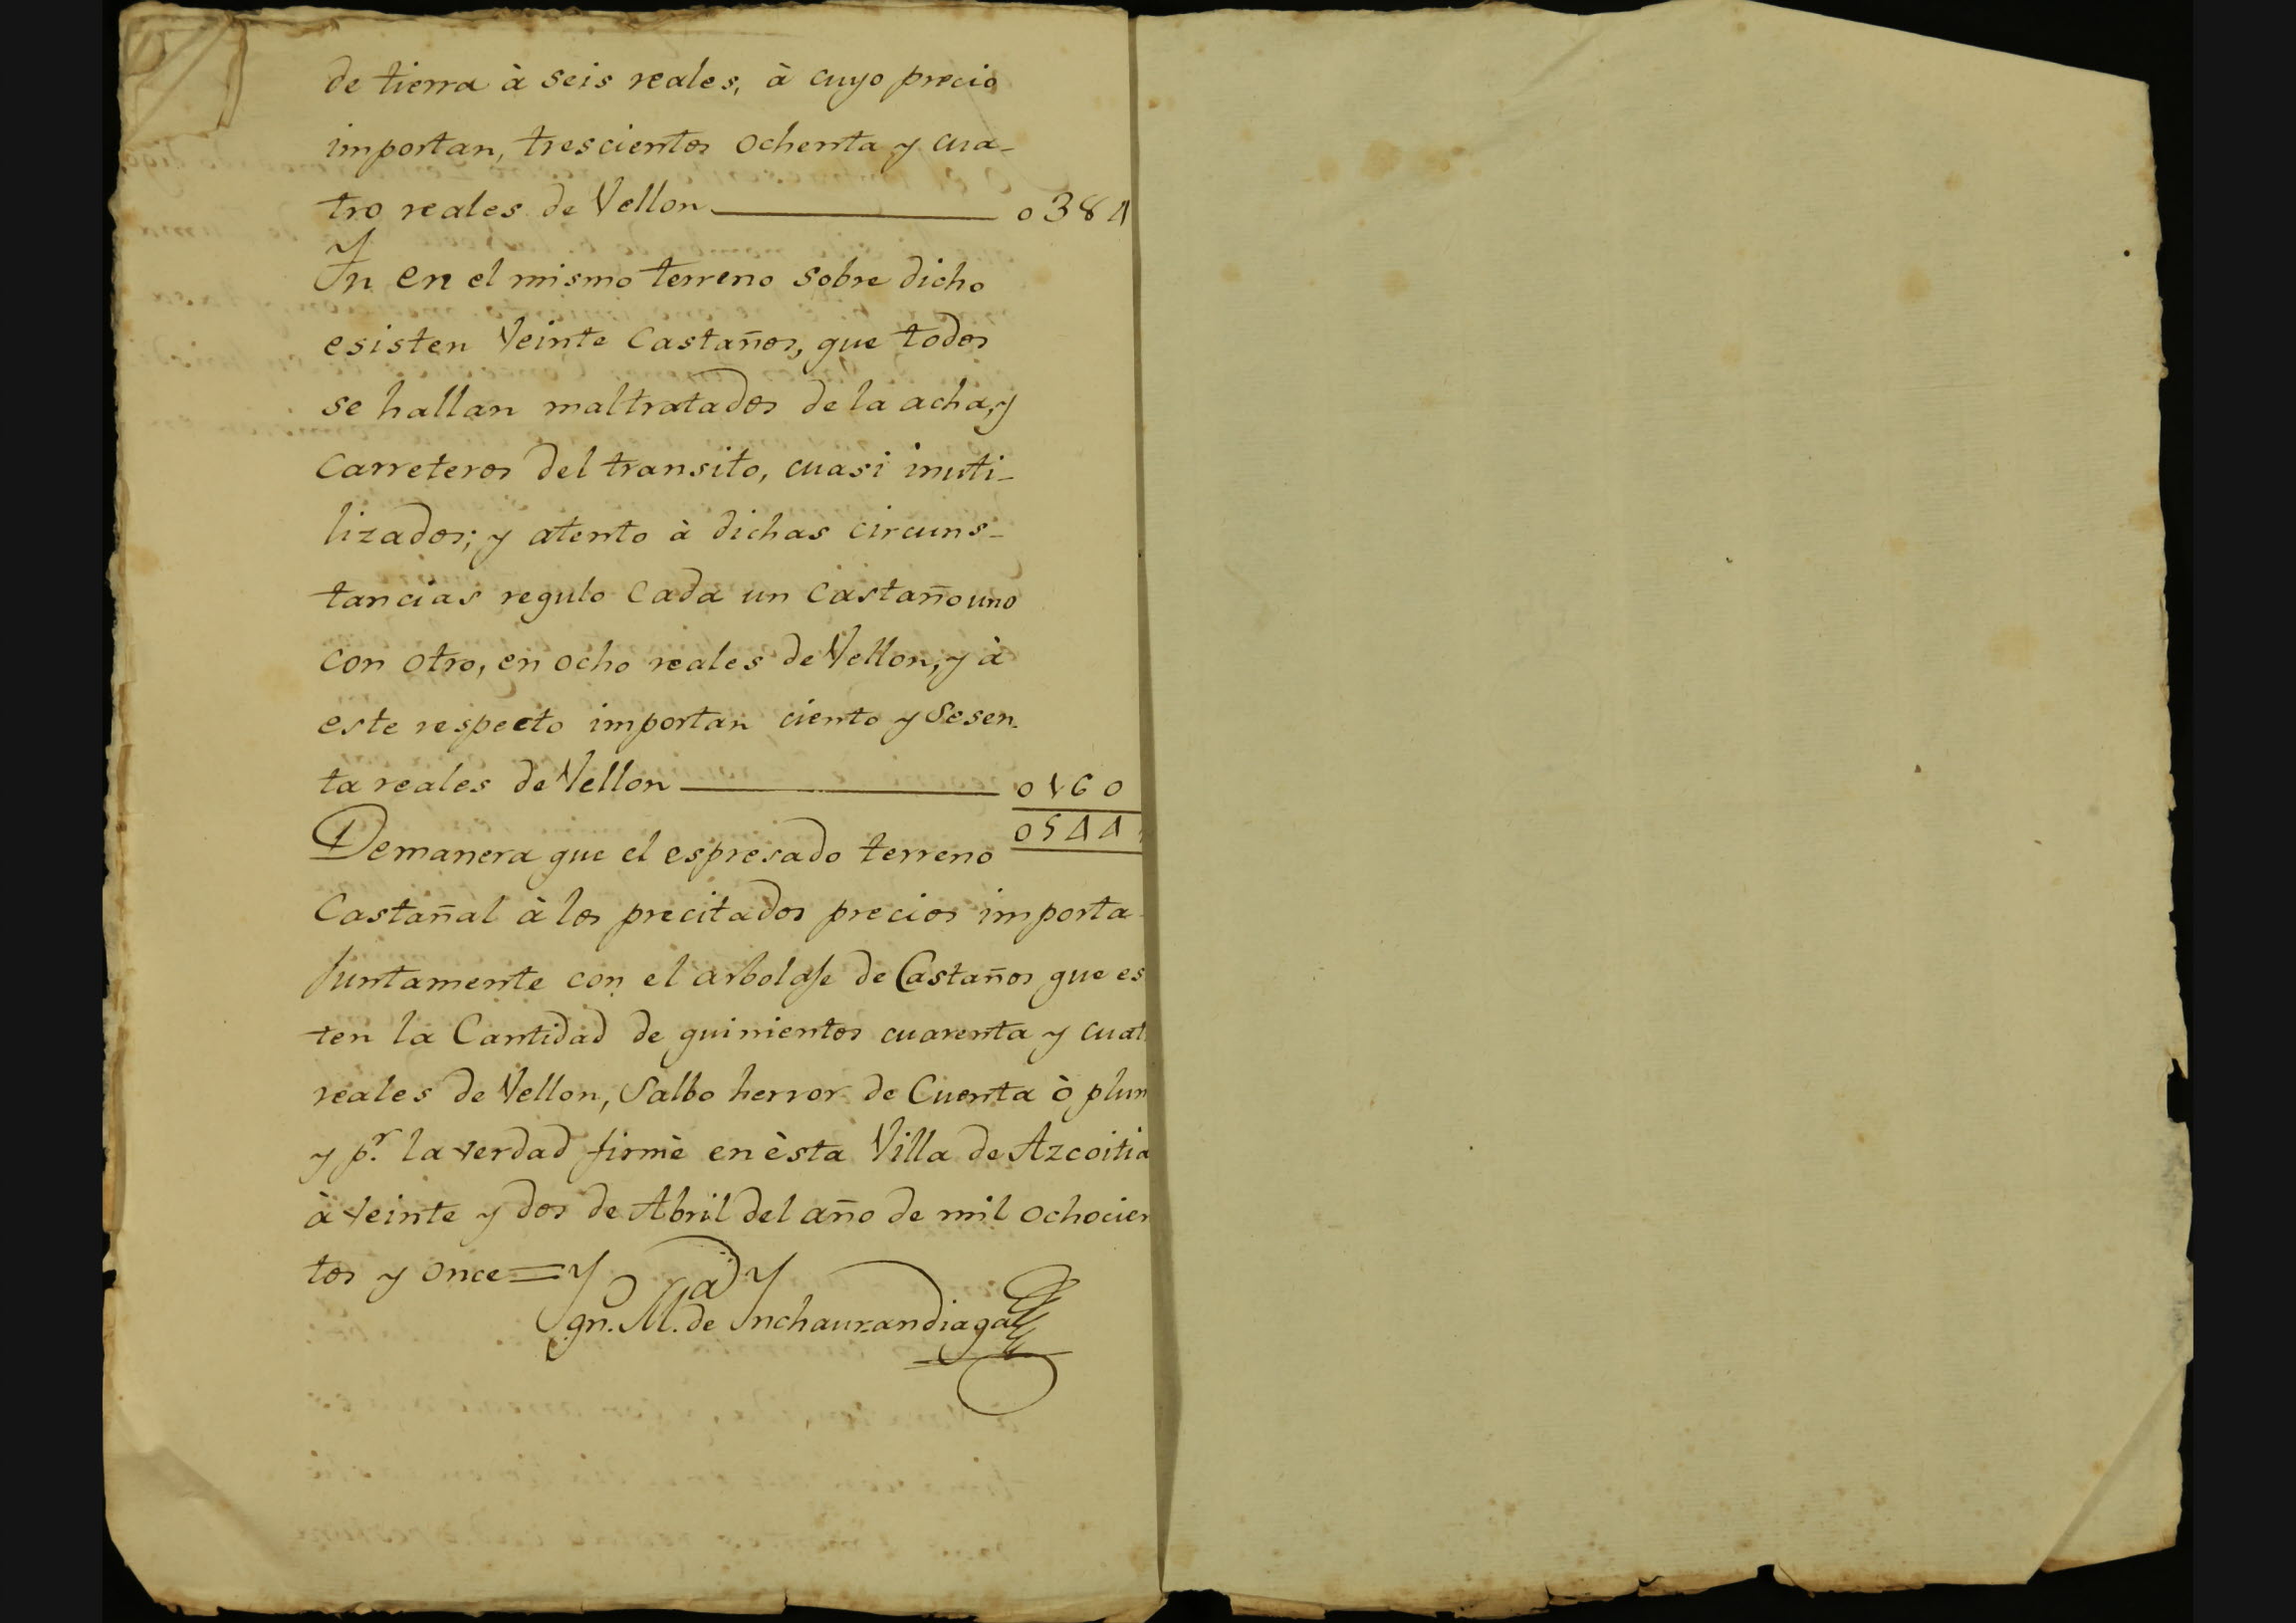 de tierra à seis reales, à cuyo precio
importan, trescientos ochenta y cua-
tro reales de Vellon 0384
Yn en el mismo terreno sobre dicho
esisten Veinte Castaños, que todos
se hallan maltratados de la acha, y
Carreteros del transito, cuasi inuti-
lizados; y atento à dichas circuns-
tancias regulo Cada un Castaño uno
con otro, en ocho reales de Vellon, y à
este respecto importan ciento y Sesen-
ta reales de Vellon 0160
0544
Demanera que el espresado terreno
Castañal à los precitados precios importa
Juntamente con el arbolaje de Castaños que es
ten la Cantidad de quinientos cuarenta y cuat
reales de Vellon, Salbo herror de Cuenta ò plum
y pr. la verdad firmè en èsta Villa de Azcoitia
à Veinte y dos de Abril del año de mil ochocien
tos y once=
Ygn. M.a de Ynchaurandiaga